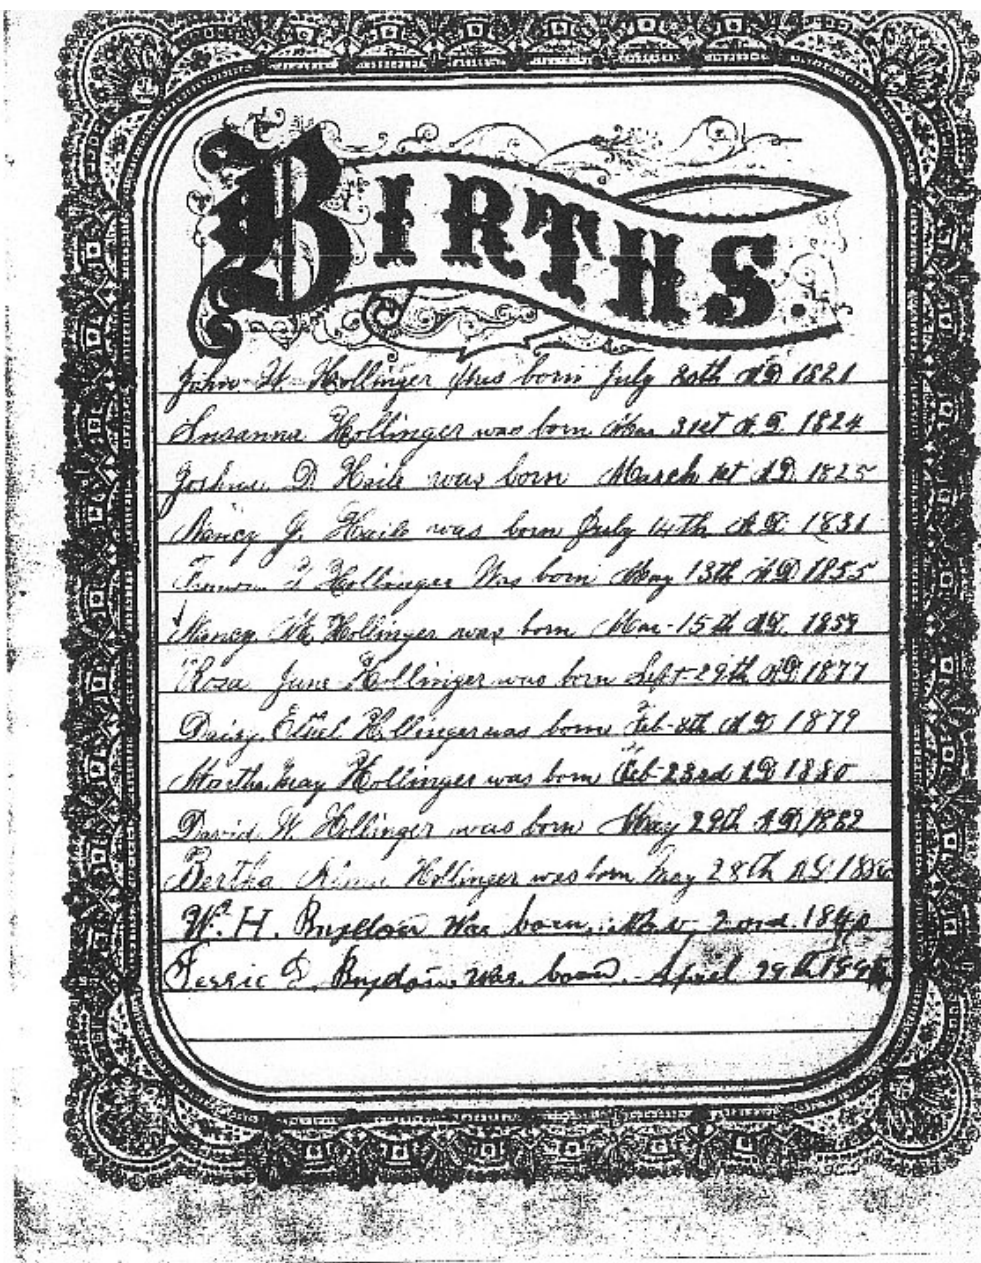 BIRTHS.
John H. Hollinger was born July 20th A.D. 1821
Susanna Hollinger was born Mar 31st A.D. 1824
Joshua D. Haile was born March 1st A.D. 1825
Nancy J. Haile was born July 14th A.D. 1831
Hollinger Was born May 13th A.D. 1855
Nancy M. Hollinger was born Mar. 15th A.D. 1859
Rosa June Hollinger was born Sept. 29th A.D. 1877
Daisy Ethel Hollinger was born Feb. 8th A.D. 1879
Martha may Hollinger was born Feb. 23rd A.D. 1880
David W. Hollinger was born May 29th A.D. 1882
Bertha Hollinger was born may 28th A.D.
W. H. was born. Nov. 2ond. 1840
was. born. April 29th